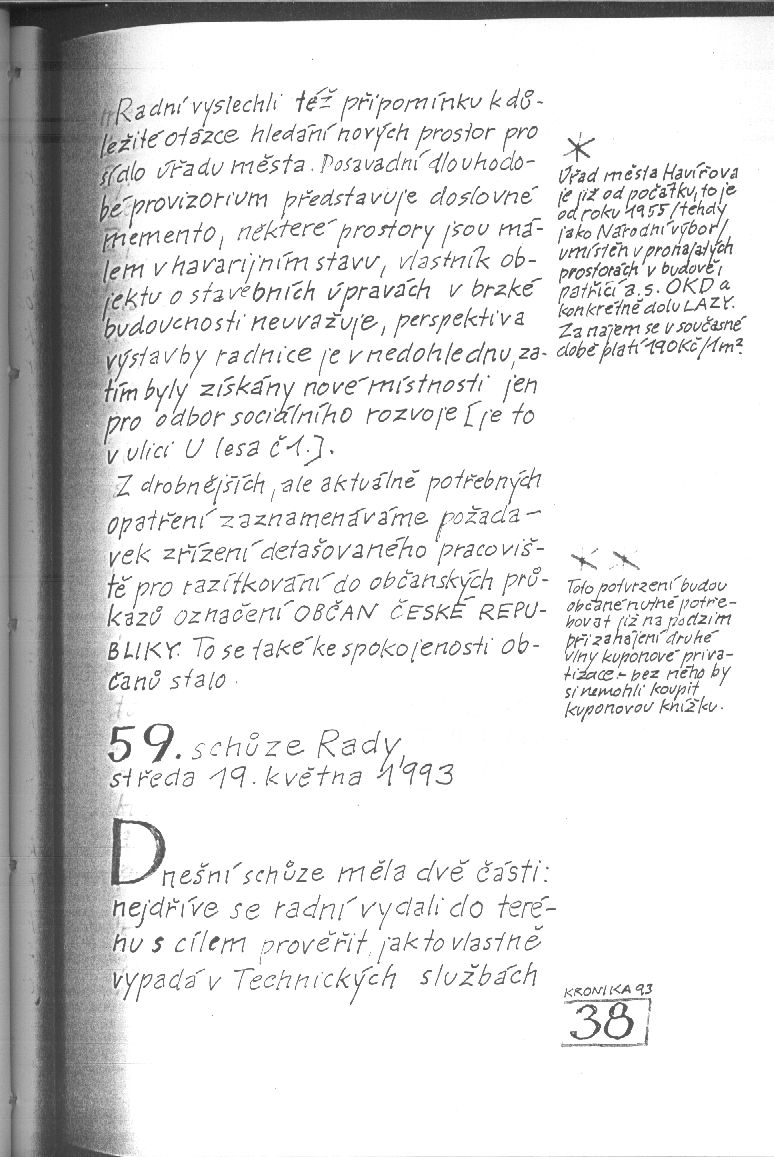 Radní vyslechli též připomínku k dů-
ležité otázce hledání nových prostor pro
sídlo úřadu města. Dosavadní dlouhodo-
bé provizorium představuje doslovné
memento, některé prostory jsou má-
lem v havarijním stavu, vlastník ob-
jektu o stavebních úpravách v brzké
budoucnosti neuvažuje, perspektiva
výstavby radnice je v nedohlednu, za-
tím byly získány nové místnosti jen
pro odbor sociálního rozvoje [je to
v ulici U lesa č 1.].
Z drobnějších, ale aktuálně potřebných
opatření zaznamenáváme požada-
vek zřízení detašovaného pracoviš-
tě pro razítkování do občanských prů-
kazů označení OBČAN ČESKÉ REPU-
BLIKY. To se také ke spokojenosti ob-
čanů stalo.
*
Úřad města Havířova
je již od počátku, to je
od roku 1955 /tehdy
jako Národní výbor/
umístěn v pronajatých
prostorách v budově,
patřící a.s. OKD a
konkrétně dolu LAZY.
Za najem se v současné
době platí 190Kč/1m².
* *
Toto potvrzení budou
občané nutně potře-
bovat již na podzim
při zahájení druhé
vlny kuponové priva-
tizace - bez něho by
si nemohli koupit
kuponovou knížku.
59. schůze Rady,
středa 19. května 1993
Dnešní schůze měla dvě části:
nejdříve se radní vydali do teré-
nu s cílem prověřit, jak to vlastně
vypadá v Technických službách
KRONIKA 93
38